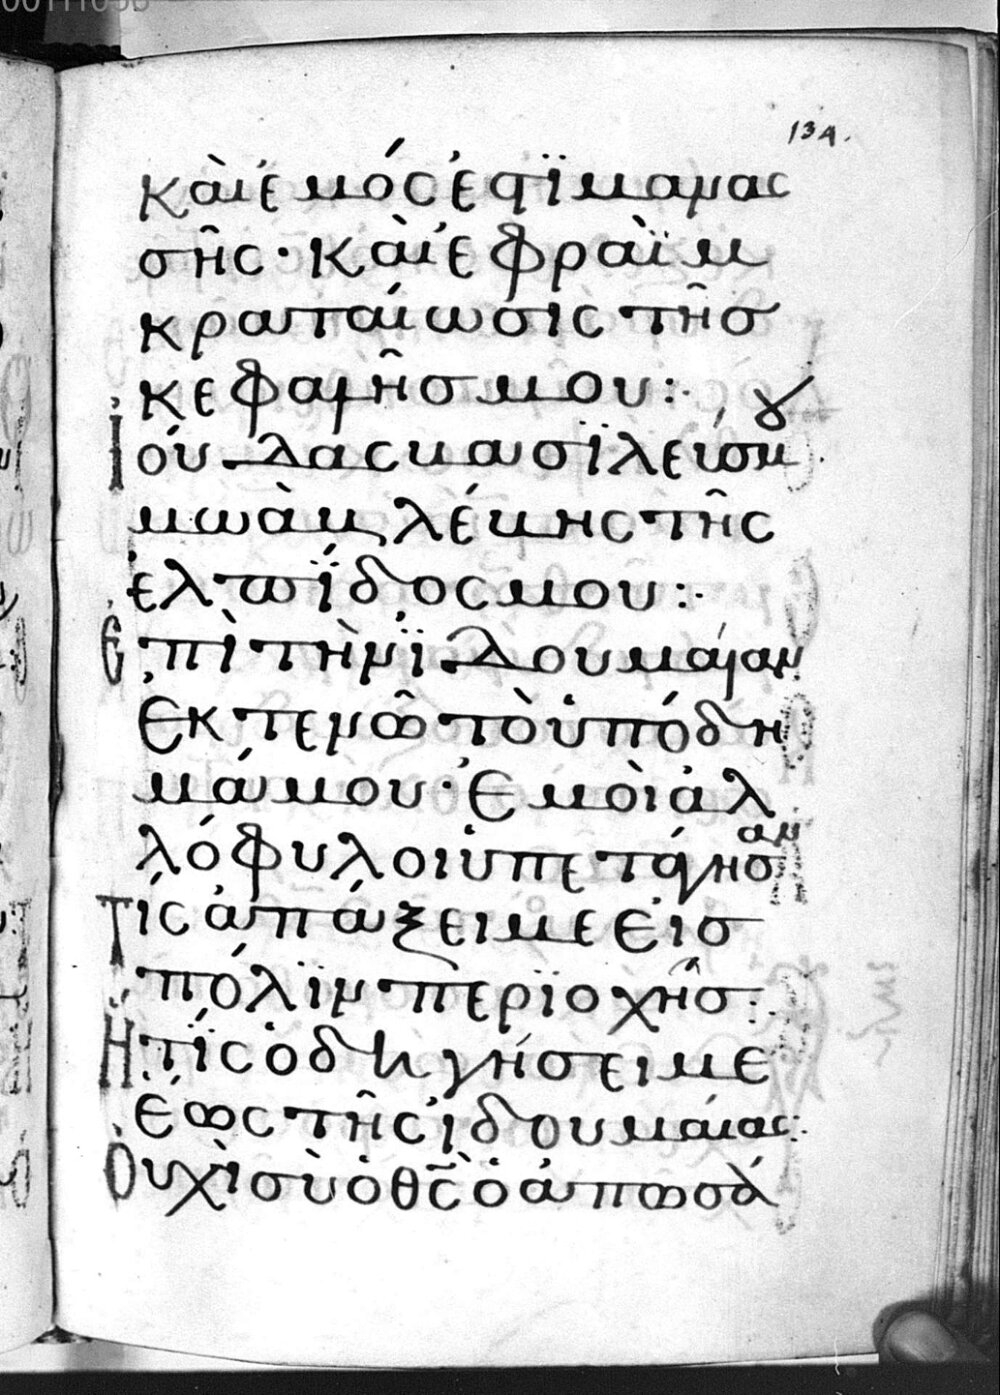 134.
κὰι ἐμός ἐςτϊ μανας
σῆς· κὰι ἐφραὶμ
κραταίωσις τῆσ
κεφαλῆσ μου:·
Ἰούδας βασϊλεύσ μȣ
μωὰβ λέβης τῆς
ἐλπΐδος μου:·
Ἐπὶ τὴν ἰδουμαίαν
ἐκτενῶ τὸ ὑπόδη
μά μου· Ἐμοὶ ἀλ
λόφυλοι ὑπετάγησαν
Τίς ἀπάξει με εἰσ
πόλϊν περϊοχῆσ:
Ἤ τίς ὁδηγήσει με
ἕως τῆς ἰδουμαίας:
Ὀυχὶ σὺ ὁ θς ὁ ἀπωσά